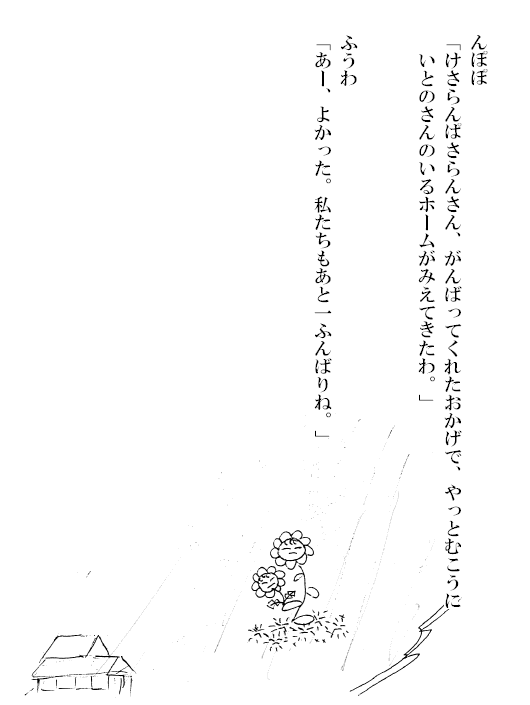 んぽぽ
「けさらんぱさらんさん、がんばってくれたおかげで、やっとむこうに
いとのさんのいるホームがみえてきたわ。」
ふうわ
「あー、よかった。私たちもあと一ふんばりね。」